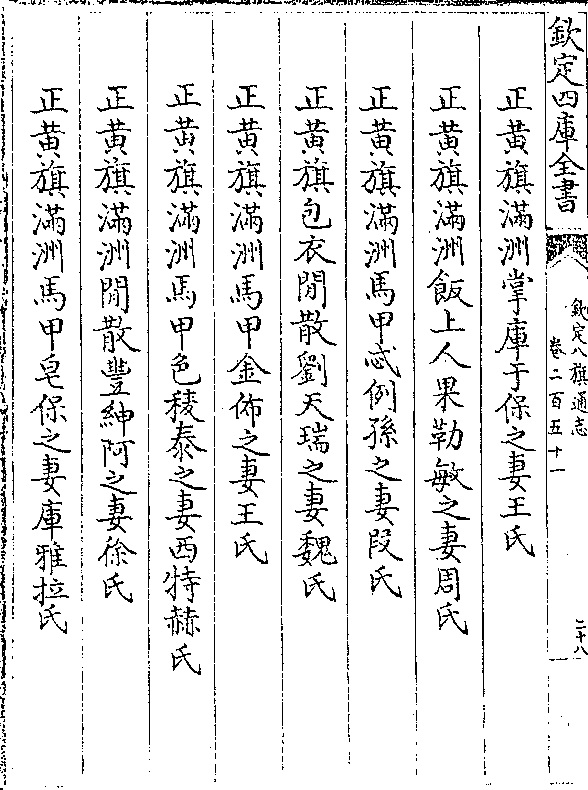 欽定四庫全書
欽定八旗通志
卷二百五十一
二十八
正黄旗滿洲掌庫于保之妻王氏
正黄旗滿洲飯上人果勒敏之妻周氏
正黄旗滿洲馬甲忒例孫之妻段氏
正黄旗包衣閒散劉天瑞之妻魏氏
正黄旗滿洲馬甲金佈之妻王氏
正黄旗滿洲馬甲色稜泰之妻西特赫氏
正黄旗滿洲閒散豐紳阿之妻徐氏
正黄旗滿洲馬甲皂保之妻庫雅拉氏